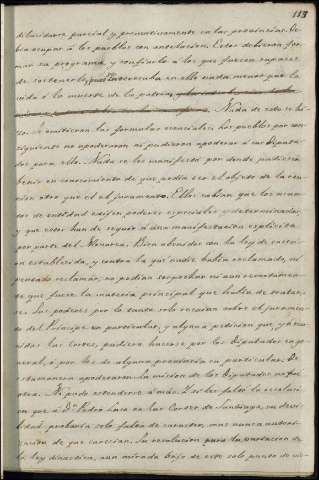 113
dilucidara parcial y privativamente en las provincias. De-
bia ocupar á los pueblos con antelacion. Estos debieran for-
mar su programa, y confiarlo á los que fuesen capaces
de sostenerlo, pues se interesaba en ello nada menos que la
vida ó la muerte de la patria,
Nada de esto se hi-
zo. Se omitieron las formulas esenciales. Los pueblos por con-
siguiente no apoderaron ni pudieron apoderar á sus Diputa-
dos para ello. Nada se les manifestó por donde pudiesen
venir en conocimiento de que podia ser el objeto de la reu-
nion otro que el del juramento. Ellos sabian que los asun-
tos de entidad exijen poderes especiales y determinados,
y que estos han de seguir á una manifestacion esplicita
por parte del Monarca. Bien abenidos con la ley de succes-
ion establecida, y contra la que nadie habia reclamado, ni
pensado reclamar, no podian sospechar ni aun remotamen-
te que fuese la materia principal que habia de tratar-
se. Sus poderes por lo tanto solo recaian sobre el juramen-
to del Principe en particular, y alguna peticion que, ya reu-
nidas las Cortes, pudiera hacerse por los Diputados en ge-
neral, ó por los de alguna provincia en particular. De
esta manera apoderaron. La mision de los Diputados no fue
otra. No pudo estenderse á mas. Y si les faltó la resoluci-
on que á Dn. Pedro Laso en las Cortes de Santiago, su devi-
lidad probaria solo falta de caracter, mas nunca autori-
zacion de que carecian. Su resolucion para la variacion de
la ley dinastica, aun mirada bajo de este solo punto de vis-